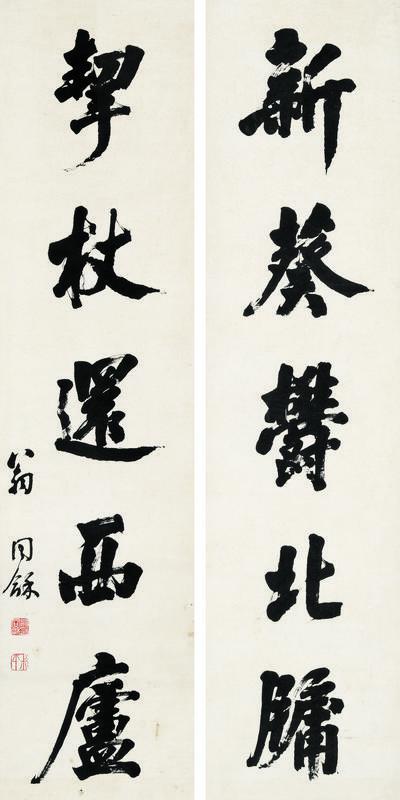 新葵鬱北牖
挈杖還西廬
翁同龢